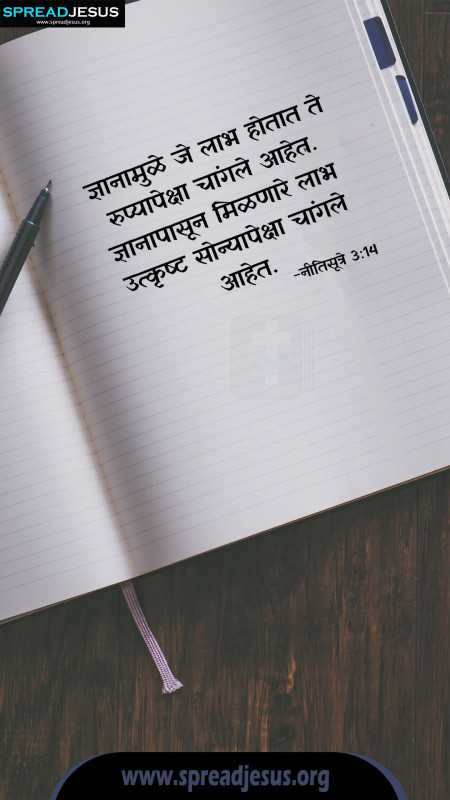 SPREADJESUS
www.spreadjesus.org
ज्ञानामुळे जे लाभ होतात ते
रुप्यापेक्षा चांगले आहेत.
ज्ञानापासून मिळणारे लाभ
उत्कृष्ट सोन्यापेक्षा चांगले
आहेत. -नीतिसूत्रे 3:14
www.spreadjesus.org